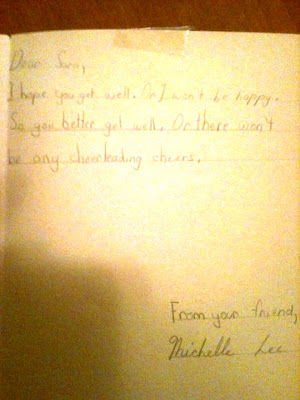 Dear Sara,
I hope you get well. Or I won't be happy.
So you better get well. Or there won't
be any cheerleading cheers.
From your friend,
Michelle Lee